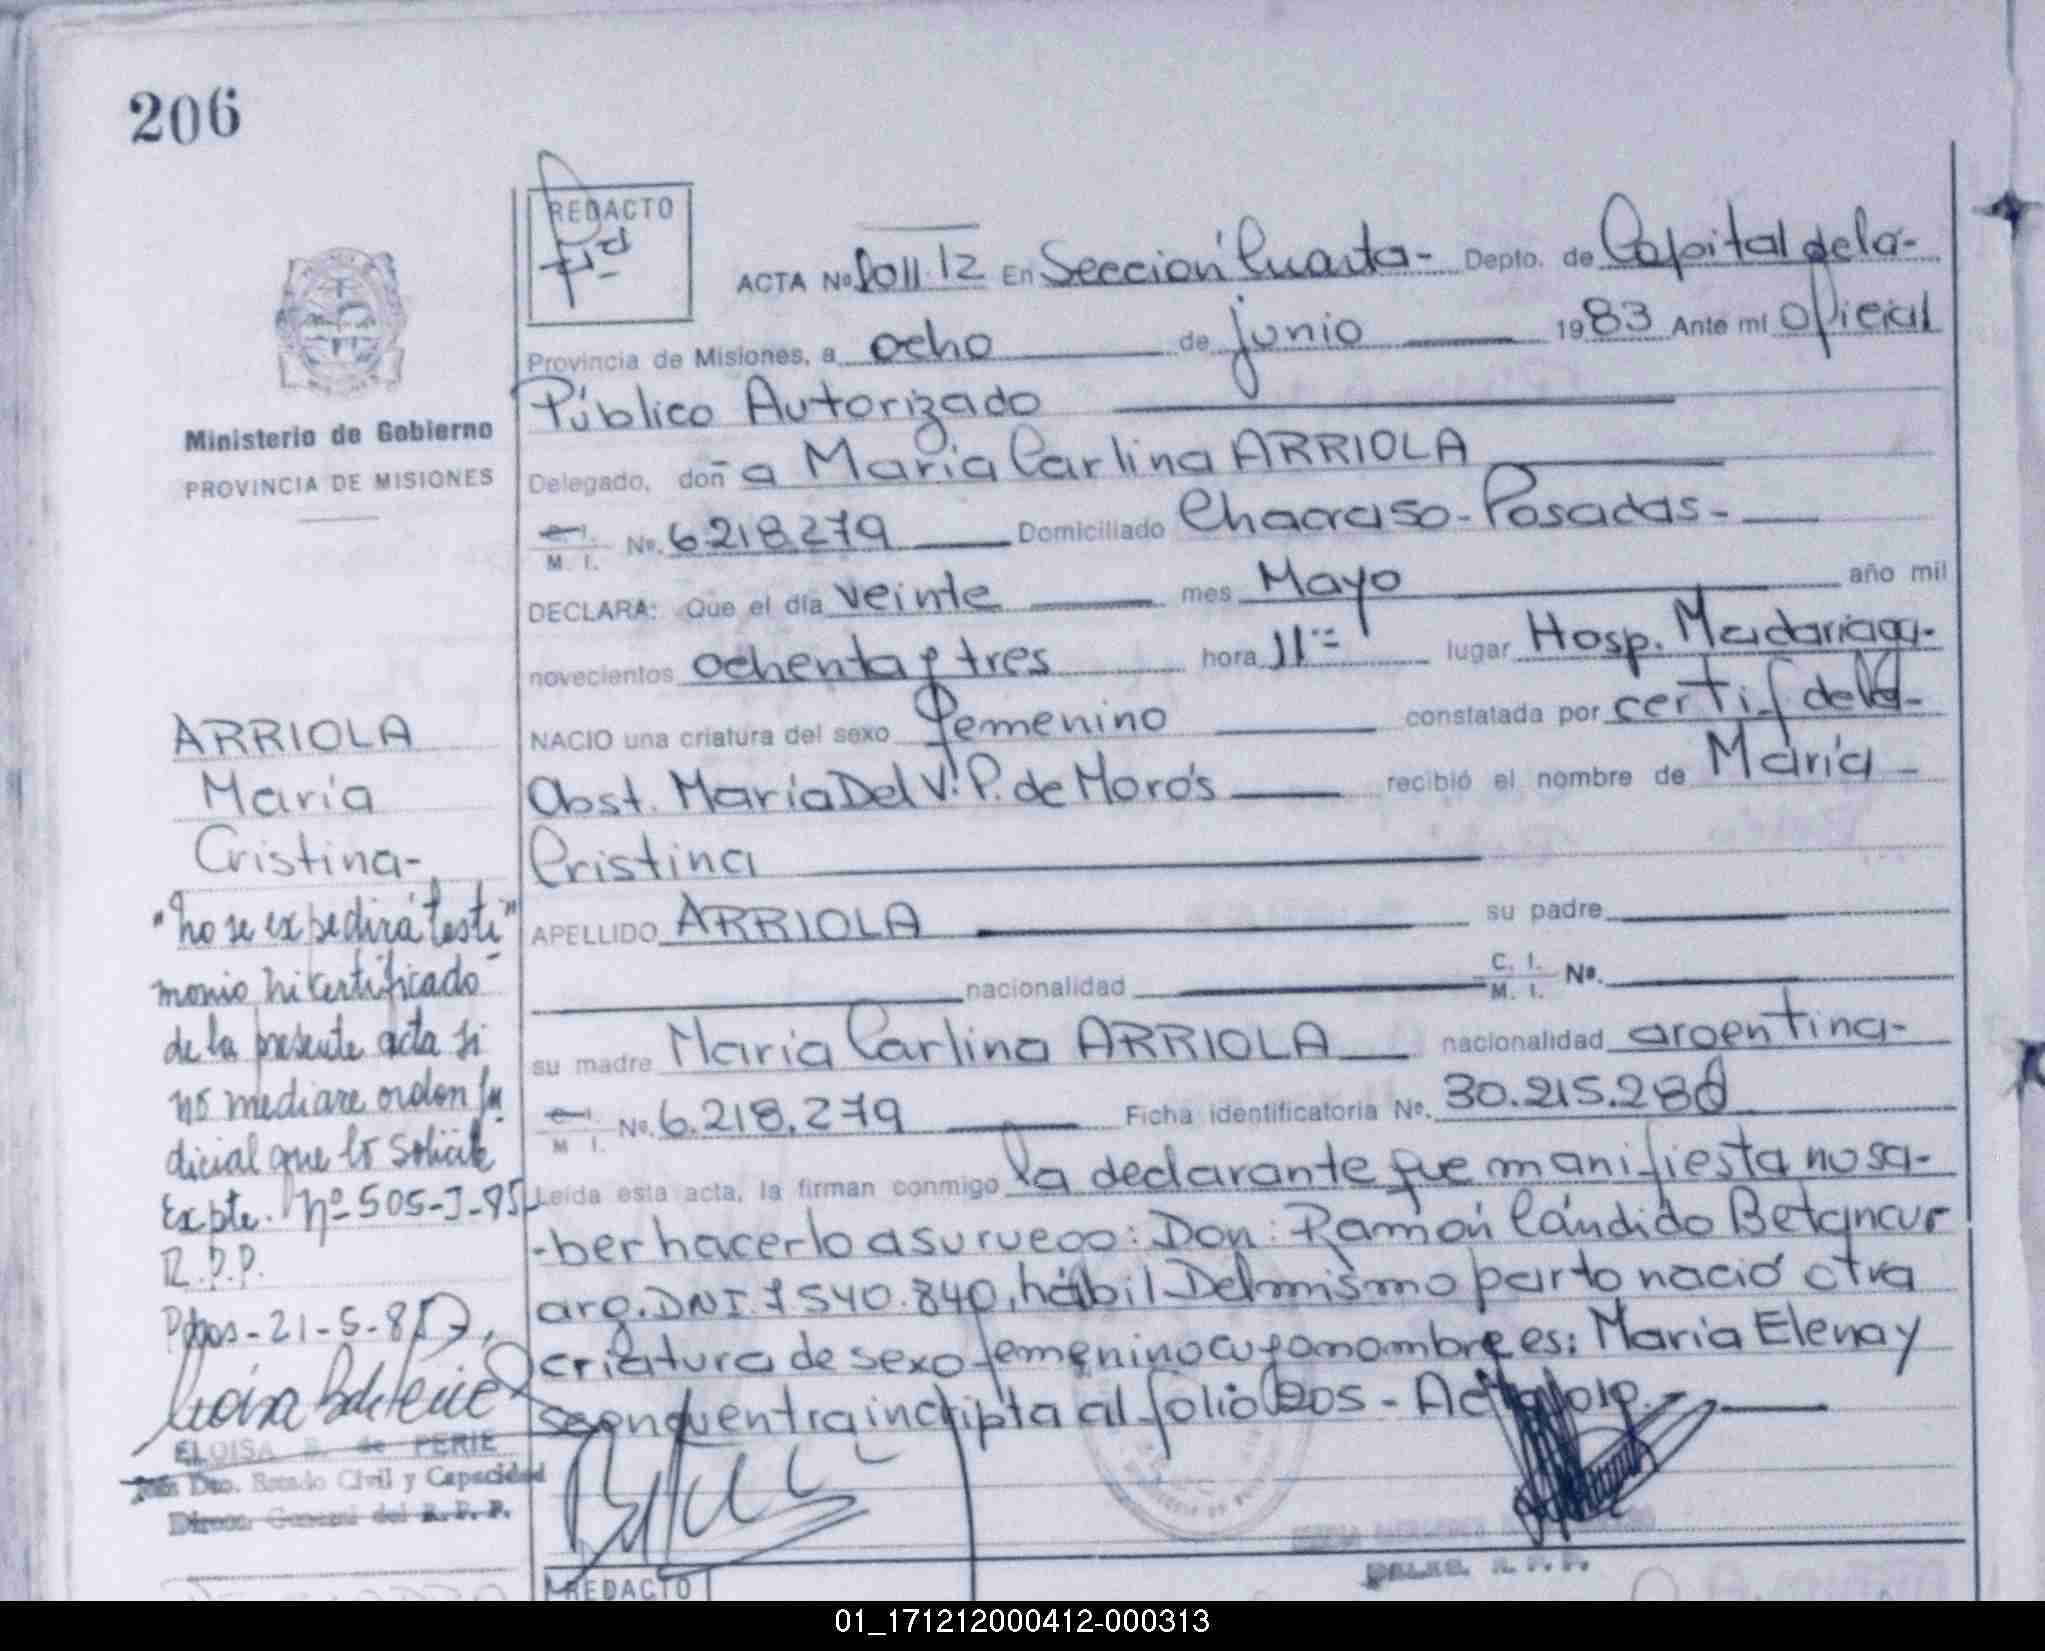 206
REDACTO
ACTA Nº 2011.12 En Sección Cuarta- Depto. de Capital de la-
Provincia de Misiones, a ocho de junio 1983 Ante mí Oficial
Público Autorizado
Ministerio de Gobierno
PROVINCIA DE MISIONES
Delegado, doña María Carlina ARRIOLA
M. I. Nº. 6218279 Domiciliado Chacra 50- Posadas-
DECLARA: Que el día veinte mes Mayo año mil
novecientos ochenta y tres hora 11 lugar Hosp. Madariaga-
NACIO una criatura del sexo Femenino constatada por certif de la-
Obst. María Del V. P. de Moro's recibió el nombre de María-
Cristina
APELLIDO ARRIOLA su padre
nacionalidad C. I. M. I. Nº.
su madre María Carlina ARRIOLA nacionalidad argentina-
M I. Nº. 6.218.279 Ficha identificatoria Nº. 30.215.280
Leída esta acta, la firman conmigo la declarante que manifiesta no sa-
-ber hacerlo a su ruego: Don: Ramón Cándido Betancur
arg. DNI. 7540.840, hábil- Del mismo parto nació otra
criatura de sexo femenino cuyo nombre es: María Elena y
se encuentra incripta al folio 205 - Acta
ARRIOLA
María
Cristina-
"No se expedirá testi"
monio ni certificado
de la presente acta si
no mediare orden ju
dicial que lo solicite
Expte. Nº 505-J-85
R.P.P.
Pdas- 21-5-85
ELOISA B. de PERIE
Dto. Estado Civil y Capacidad
Direcc. General del R. P. P.
REDACTO
01_171212000412-000313